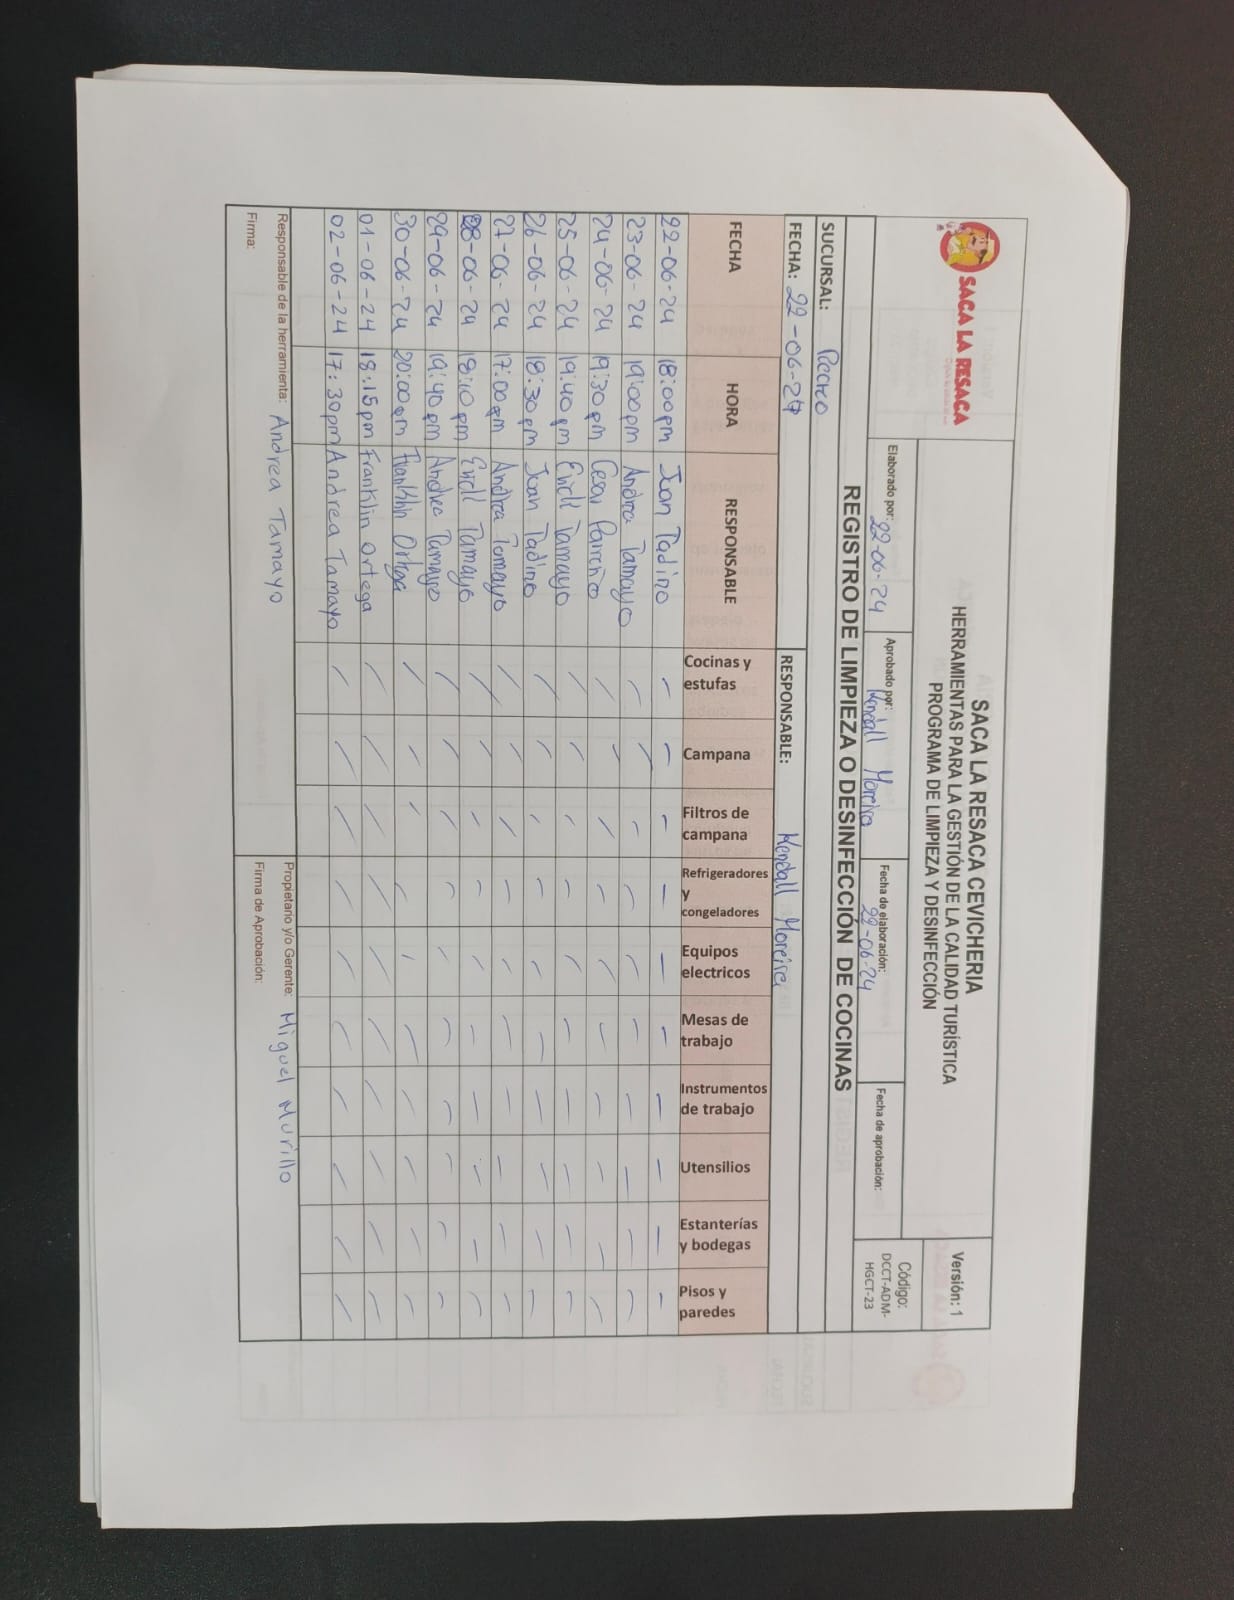 SACA LA RESACA
SACA LA RESACA CEVICHERIA
HERRAMIENTAS PARA LA GESTIÓN DE LA CALIDAD TURÍSTICA
PROGRAMA DE LIMPIEZA Y DESINFECCIÓN
Versión: 1
Elaborado por: 22-06-24
Aprobado por: Kendall Moreira
Fecha de elaboración: 22-06-24
Fecha de aprobación:
Código: DCCT-ADM-HGCT-23
REGISTRO DE LIMPIEZA O DESINFECCIÓN DE COCINAS
SUCURSAL: Recreo
FECHA: 22-06-24 RESPONSABLE: Kendall Moreira
FECHA HORA RESPONSABLE Cocinas y estufas Campana Filtros de campana Refrigeradores y congeladores Equipos electricos Mesas de trabajo Instrumentos de trabajo Utensilios Estanterías y bodegas Pisos y paredes
22-06-24 18:00pm Joan Padino
23-06-24 19:00pm Andrea Tamayo
24-06-24 19:30pm Cesar
25-06-24 19:40pm Erick Tamayo
26-06-24 18:30pm Joan Padino
27-06-24 17:00pm Andrea Tamayo
28-06-24 18:10pm Erick Tamayo
29-06-24 19:40pm Andrea Tamayo
30-06-24 20:00pm Franklin Ortega
01-06-24 18:15pm Franklin Ortega
02-06-24 17:30pm Andrea Tamayo
Responsable de la herramienta: Andrea Tamayo Propietario y/o Gerente: Miguel Murillo
Firma: Firma de Aprobación: